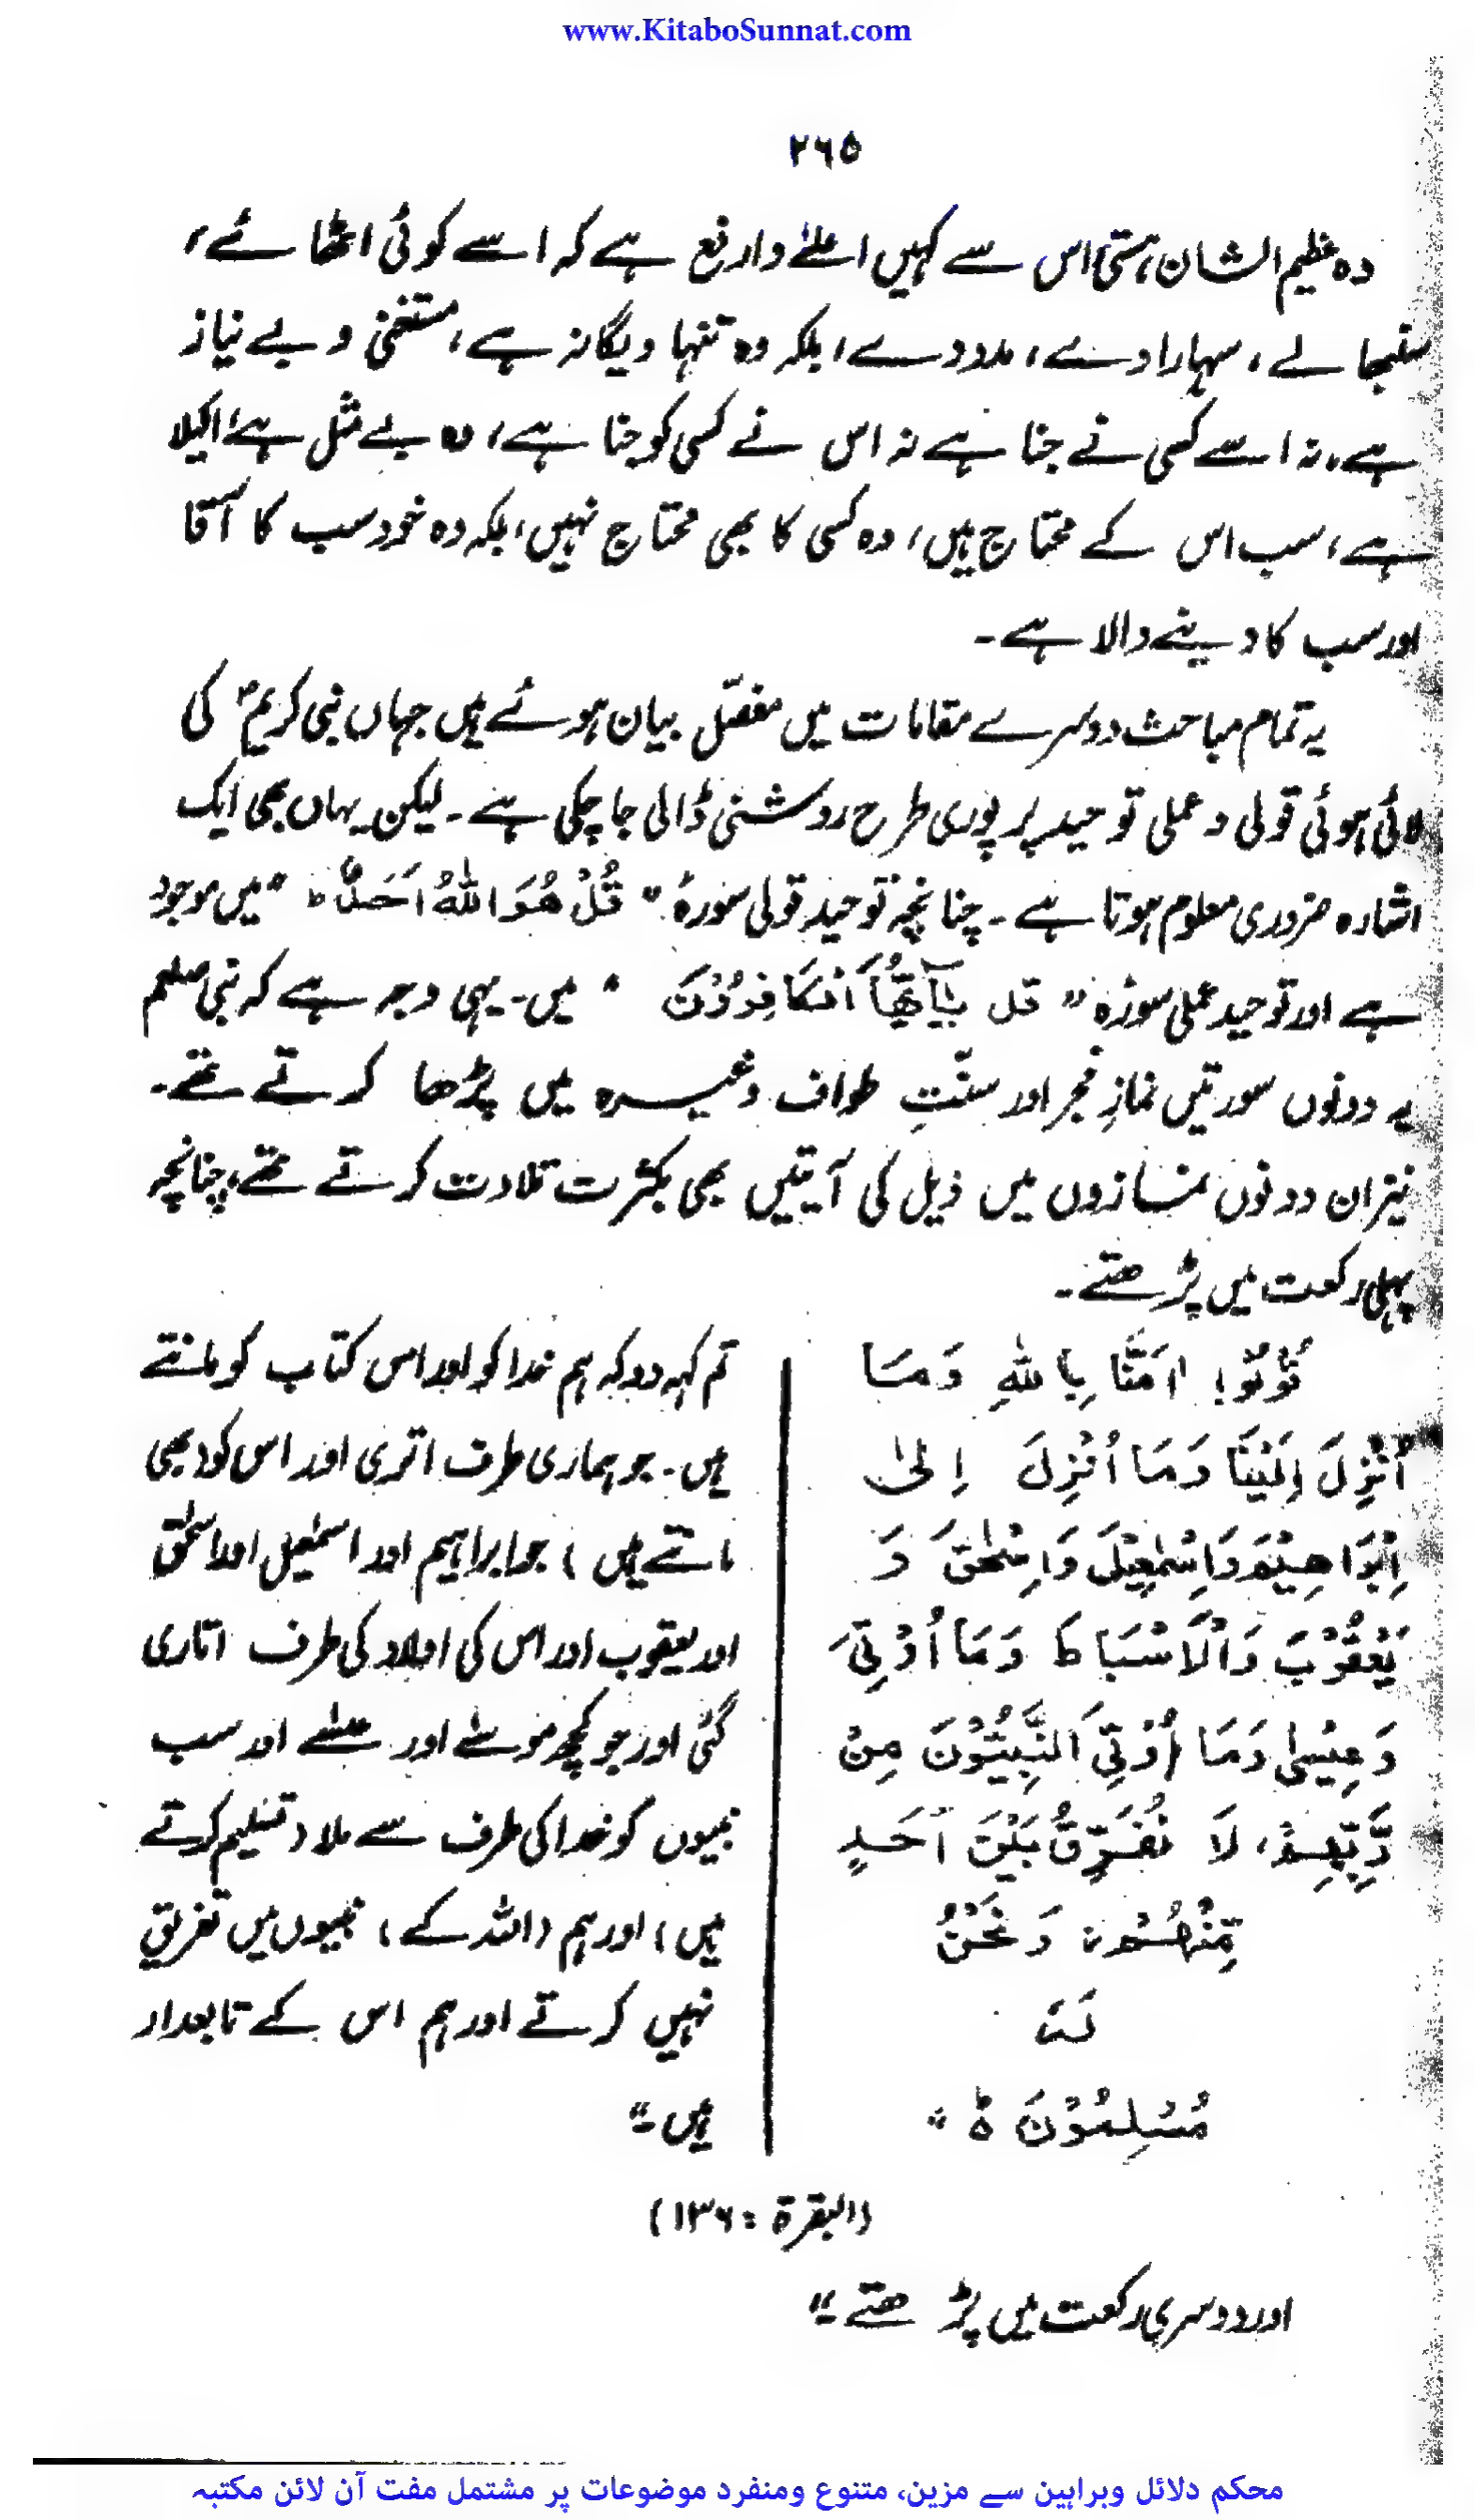 www.KitaboSunnat.com
۲۶۵
وہ عظیم الشان ہستی اس سے کہیں اعلےٰ وارفع ہے کہ اسے کوئی اٹھائے،
سنبھالے، سہارا دے، مدد دے، بلکہ وہ تنہا و یگانہ ہے، مستغنی و بے نیاز
ہے، نہ اسے کسی نے جنا ہے نہ اس نے کسی کو جنا ہے، وہ بے مثل ہے، اکیلا
ہے، سب اس کے محتاج ہیں، وہ کسی کا بھی محتاج نہیں، بلکہ وہ خود سب کا آقا
اور سب کا دینے والا ہے۔
یہ تمام مباحث دوسرے مقامات میں مفصّل بیان ہوئے ہیں جہاں نبی کریمؐ کی
لائی ہوئی قولی و عملی توحید پر پوری طرح روشنی ڈالی جا چکی ہے۔ لیکن یہاں بھی ایک
اشارہ ضروری معلوم ہوتا ہے۔ چنانچہ توحید قولی سورۂ "قُلْ هُوَ اللهُ اَحَدٌ ط" میں موجود
ہے اور توحید عملی سورۂ "قل یٰٓاَیُّهَا الْكَافِرُوْنَ" میں۔ یہی وجہ ہے کہ نبی صلعم
یہ دونوں سورتیں نمازِ فجر اور سنّتِ طواف وغیرہ میں پڑھا کرتے تھے۔
نیز ان دونوں نمازوں میں ذیل کی آیتیں بھی بکثرت تلاوت کرتے تھے، چنانچہ
پہلی رکعت میں پڑھتے۔
قُوْلُوْا اٰمَنَّا بِاللهِ وَمَا
اُنْزِلَ اِلَیْنَا وَمَا اُنْزِلَ اِلٰی
اِبْرَاهِیْمَ وَاِسْمٰعِیْلَ وَاِسْحٰقَ وَ
یَعْقُوْبَ وَالْاَسْبَاطِ وَمَا اُوْتِیَ
وَعِیْسٰی وَمَا اُوْتِیَ النَّبِیُّوْنَ مِنْ
رَّبِّهِمْ، لَا نُفَرِّقُ بَیْنَ اَحَدٍ
مِّنْهُمْ، وَ نَحْنُ
لَهٗ
مُسْلِمُوْنَ ہ"
تم کہہ دو کہ ہم خدا کو اور اس کتاب کو مانتے
ہیں۔ جو ہماری طرف اتری اور اس کو (بھی
مانتے ہیں) جو ابراہیم اور اسمٰعیل اور اسحٰق
اور یعقوب اور اس کی اولاد کی طرف اتاری
گئی اور جو کچھ موسےٰ اور عیسےٰ اور سب
نبیوں کو خدا کی طرف سے ملا (تسلیم کرتے
ہیں) اور ہم (اللہ کے) نبیوں میں تفریق
نہیں کرتے اور ہم اس کے تابعدار
ہیں۔"
(البقرۃ : ۱۳۶)
اور دوسری رکعت میں پڑھتے۔"
محکم دلائل وبراہین سے مزین، متنوع ومنفرد موضوعات پر مشتمل مفت آن لائن مکتبہ